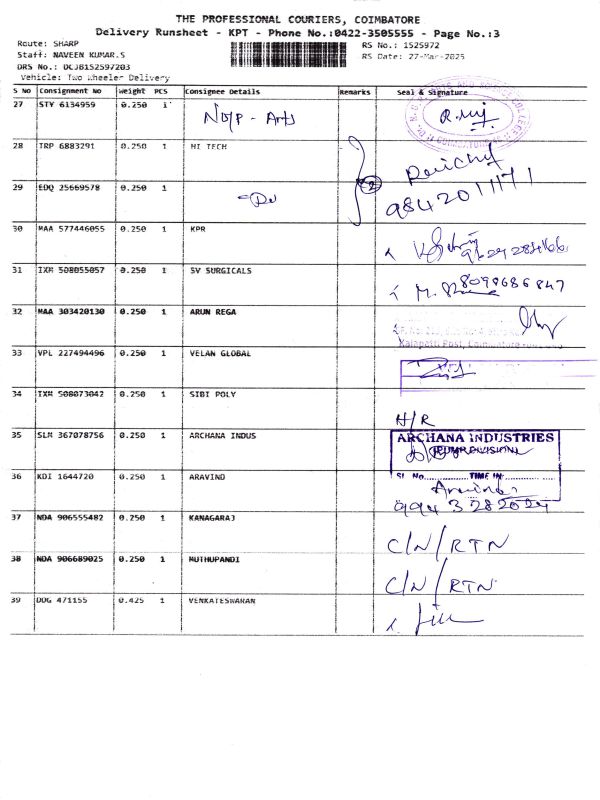 THE PROFESSIONAL COURIERS, COIMBATORE
Delivery Runsheet - KPT - Phone No.:0422-3505555 - Page No.:3
Route: SHARP
Staff: NAVEEN KUMAR.S
DRS No.: DCJB152597203
Vehicle: Two Wheeler Delivery
RS No.: 1525972
RS Date: 27-Mar-2025
S No Consignment No Weight PCS Consignee Details Remarks Seal & Signature
27 STY 6134959 0.250 1
28 TRP 6883291 0.250 1 HI TECH
29 EDQ 25669578 0.250 1 2 9842011171
30 MAA 577446055 0.250 1 KPR
31 IXM 508055057 0.250 1 SV SURGICALS 8098686847
32 MAA 303420130 0.250 1 ARUN REGA
Kalapatti Post, Coimbatore
33 VPL 227494496 0.250 1 VELAN GLOBAL
34 IXM 508073042 0.250 1 SIBI POLY H/R
35 SLM 367078756 0.250 1 ARCHANA INDUS ARCHANA INDUSTRIES
(PUMP DIVISION)
Sl. No. TIME IN
36 KDI 1644720 0.250 1 ARAVIND Aravind
37 NDA 906555482 0.250 1 KANAGARAJ C/N/RTN
38 NDA 906689025 0.250 1 MUTHUPANDI C/N/RTN
39 DDG 471155 0.425 1 VENKATESWARAN